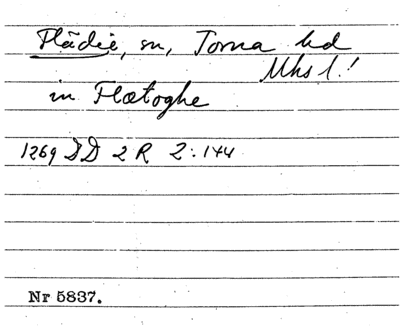 Flädie, sn, Torna hd
Mhs l.!
in Flætoghe
1269 DD 2 R 2:144
Nr 5837.